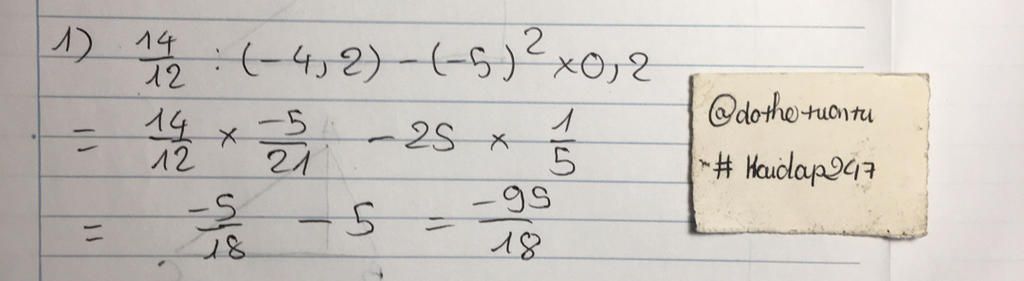 1) 14/12 : (-4,2) - (-5)² × 0,2
= 14/12 × -5/21 - 25 × 1/5
= -5/18 - 5 = -95/18
@dothetuantu
# Hoidap247